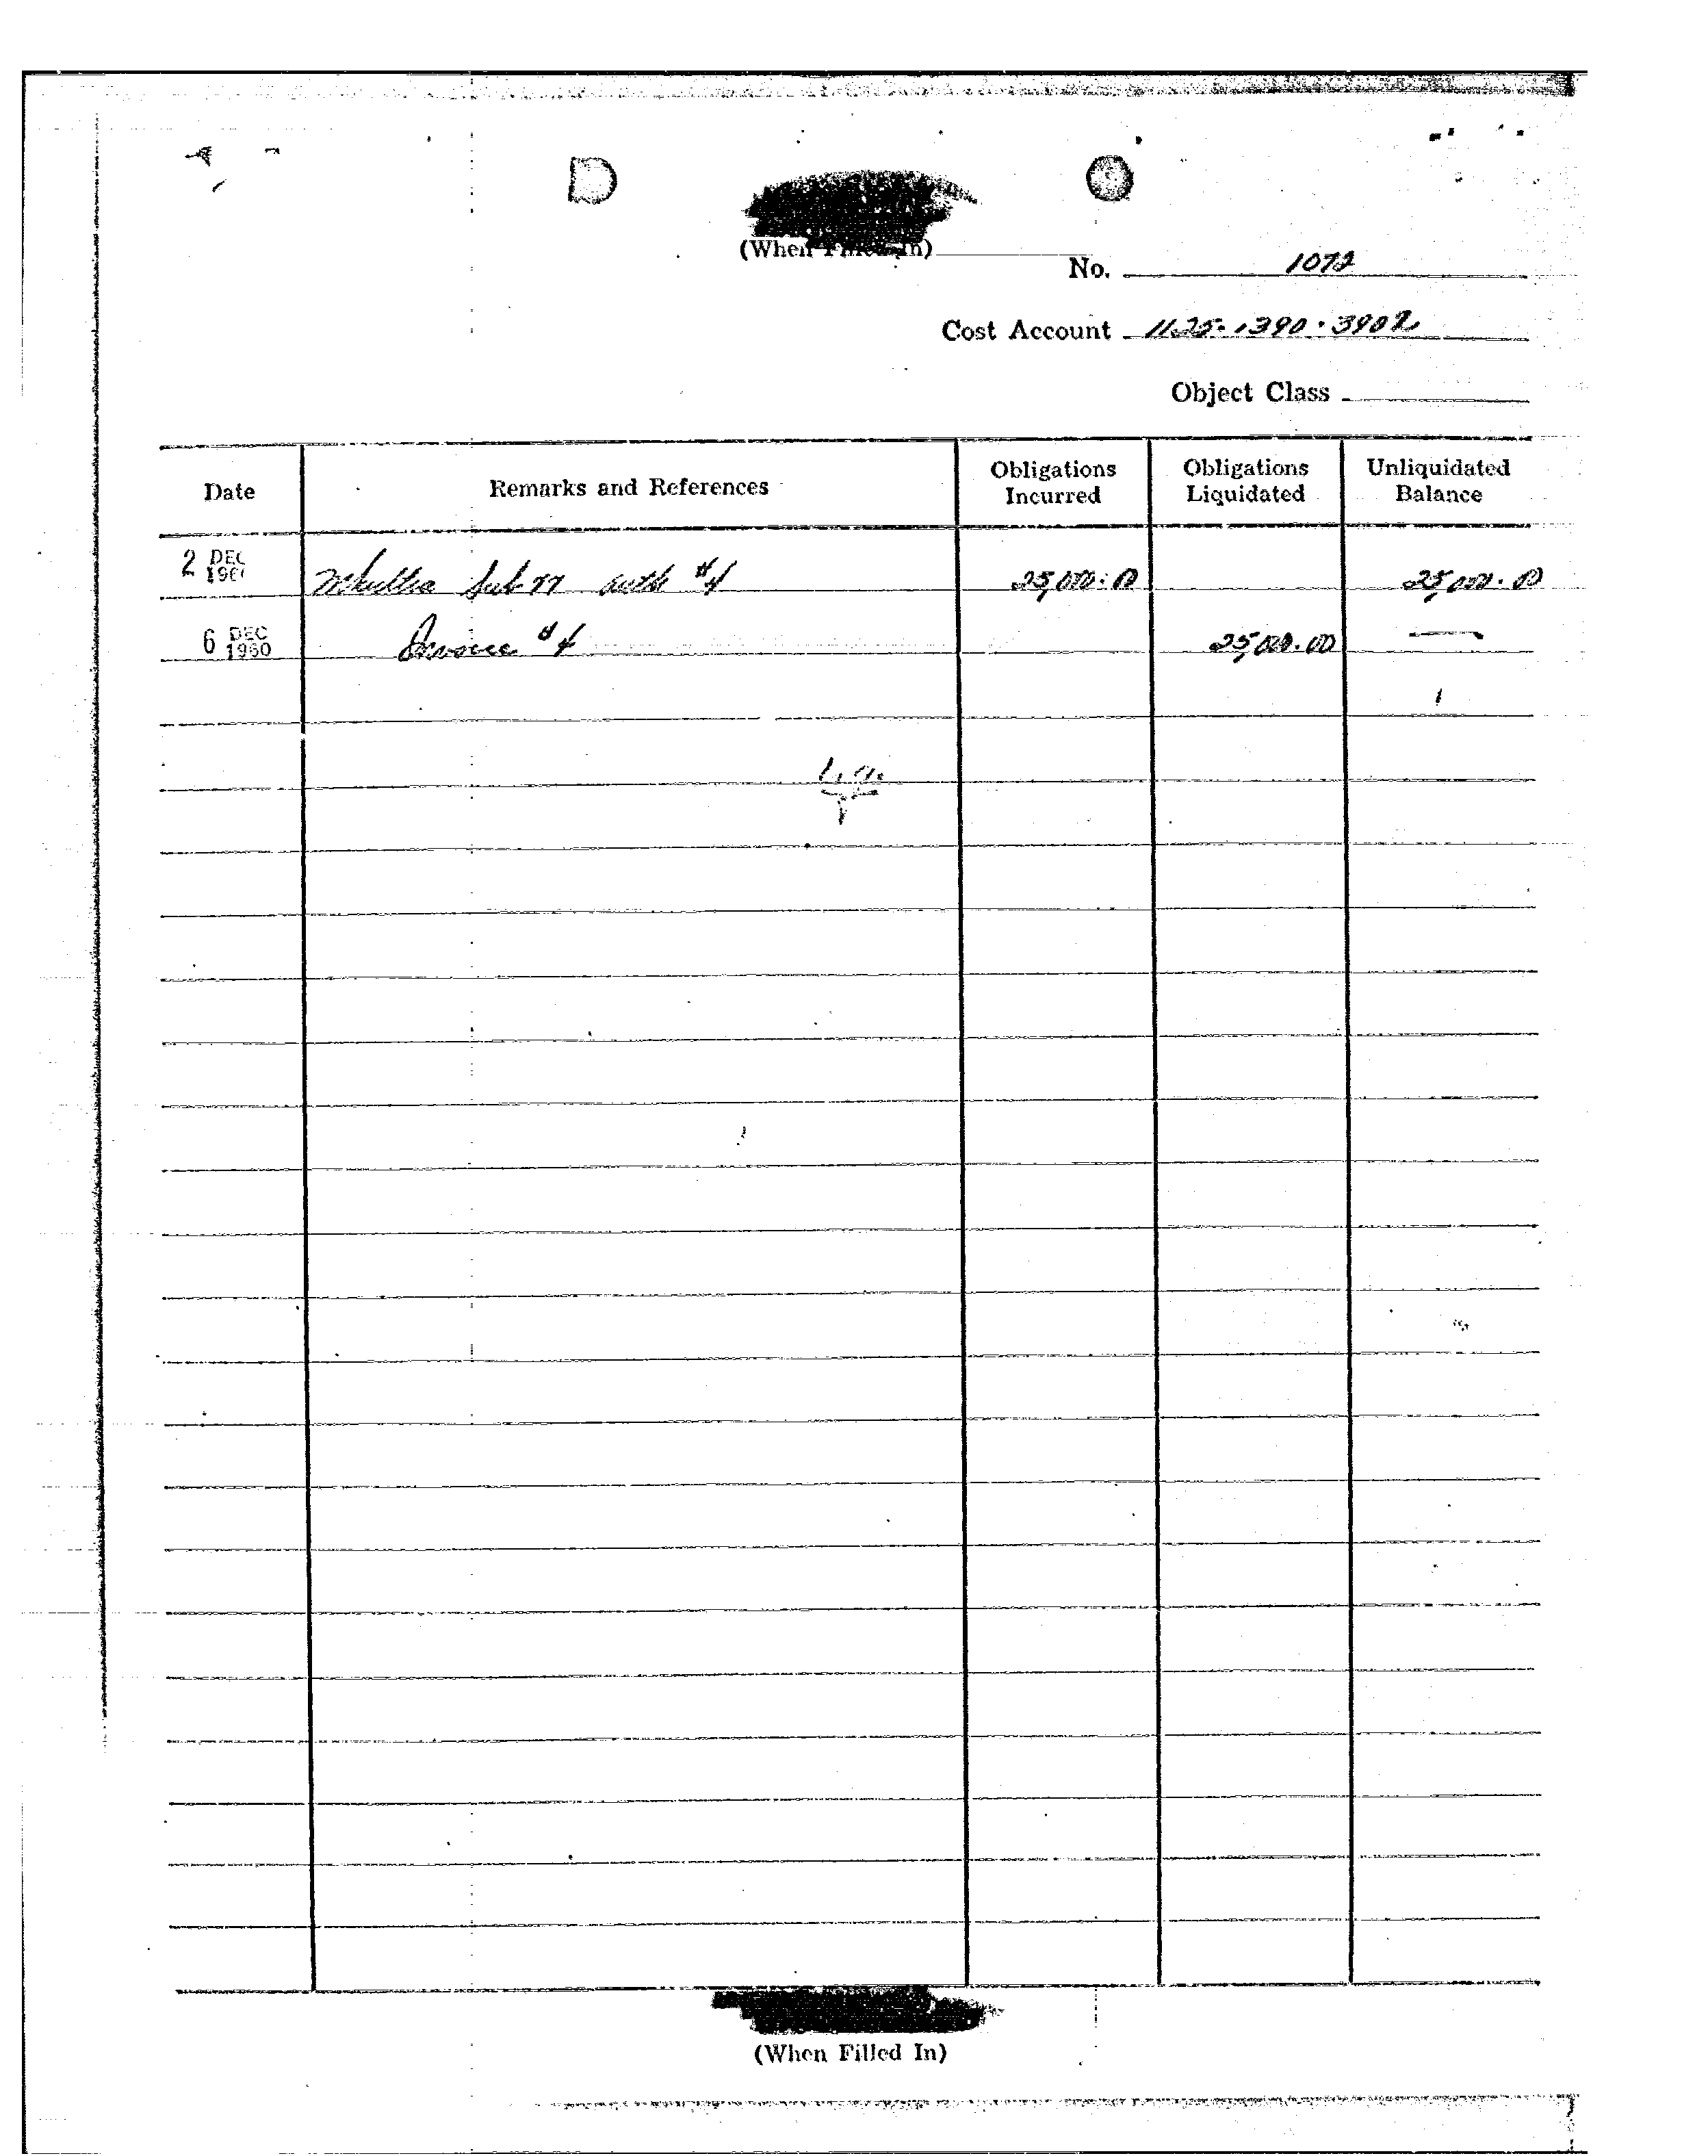 (When Filled In)
No. 1072
Cost Account 1125-1390-3902
Object Class
Date Remarks and References Obligations Incurred Obligations Liquidated Unliquidated Balance
2 DEC 196 Mkultra Sub 77 auth #4 25,000.00 25,000.00
6 DEC 1960 Invoice #4 25,000.00 —
(When Filled In)